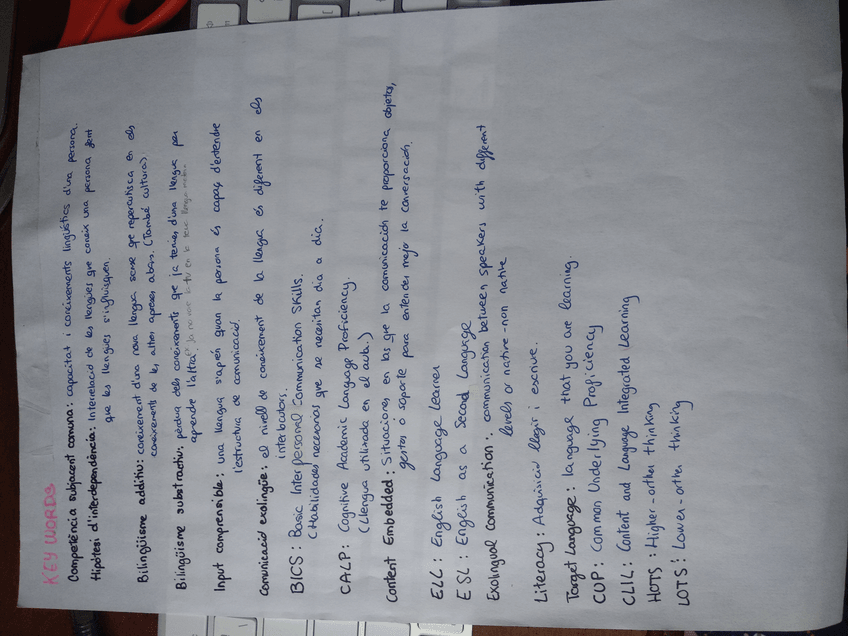 KEY WORDS
Competència subjacent comuna: capacitat i coneixements lingüístics d'una persona.
Hipòtesi d'interdependència: Interrelació de les llengües que coneix una persona fent
que les llengües s'influisquen.
Bilingüisme additiu: coneixement d'una nova llengua sense que repercutisca en els
coneixements de les altres apreses abans. (També cultura).
Bilingüisme substractiu: pèrdua dels coneixements que ja tenies d'una llengua per
aprendre l'altra.
Input comprensible: una llengua s'aprèn quan la persona és capaç d'entendre
l'estructura de comunicació.
Comunicació exolingüe: el nivell de coneixement de la llengua és diferent en els
interlocutors.
BICS: Basic Interpersonal Communication Skills.
(Habilidades necesarias que se necesitan dia a dia.
CALP: Cognitive Academic Language Proficiency.
(Llengua utilizada en el aula.)
Content Embedded: Situaciones en las que la comunicación te proporciona objetos,
gestos o soporte para entender mejor la conversación.
ELL: English Language Learner
ESL: English as a Second Language
Exolingual communication: communication between speakers with different
levels or native-non native
Literacy: Adquisició llegir i escriure.
Target Language: language that you are learning.
CUP: Common Underlying Proficiency
CLIL: Content and Language Integrated Learning
HOTS: Higher-orther thinking
LOTS: Lower-orther thinking